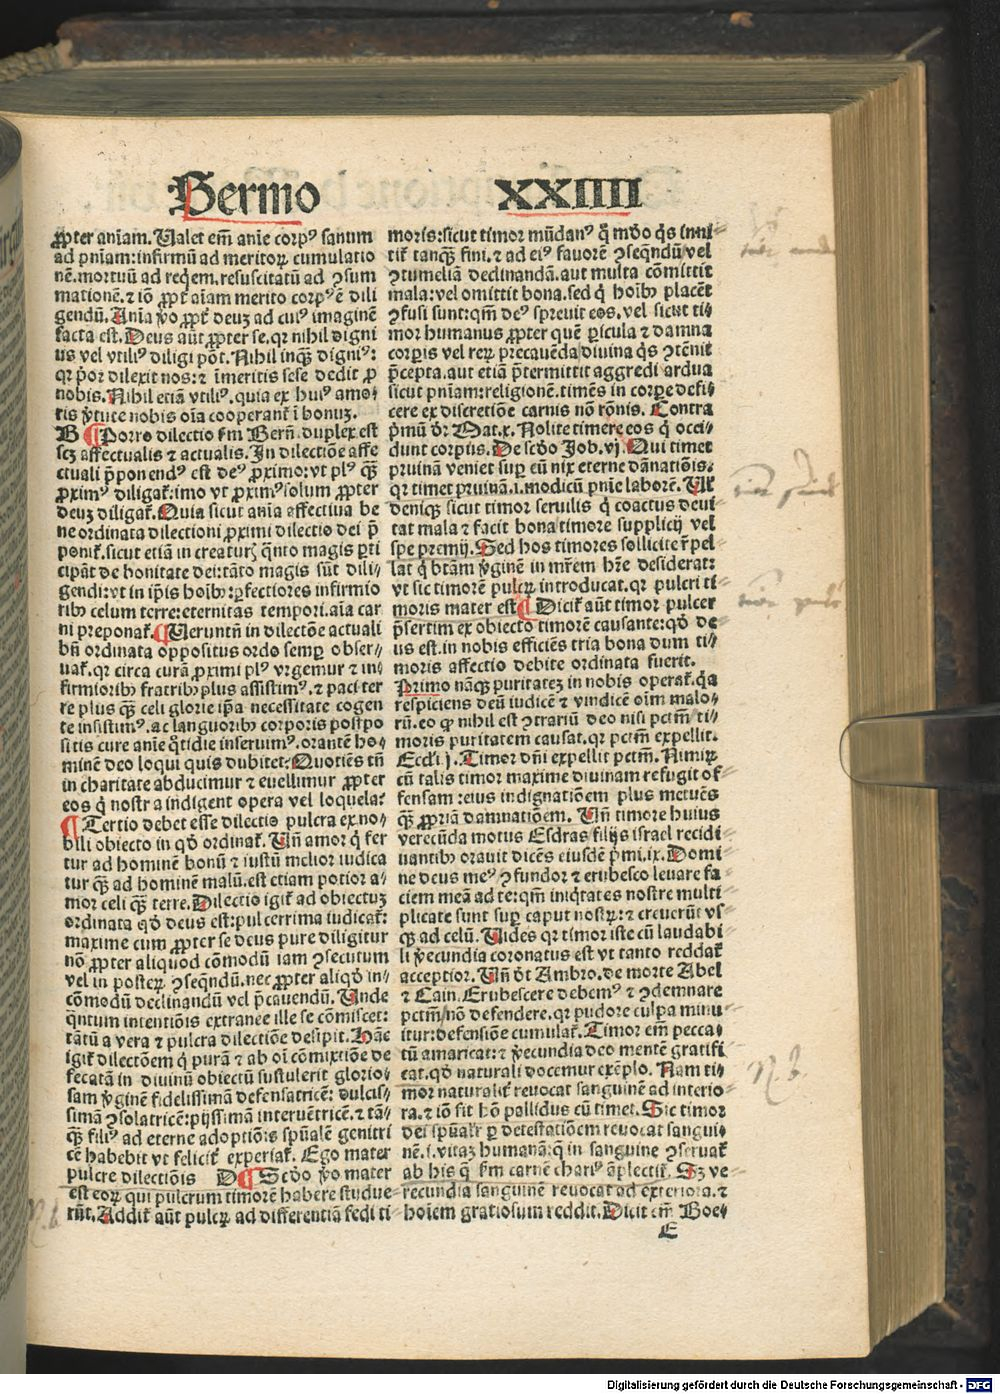 Sermo XXIIII
ꝓpter aniam. Ualet em̄ anie corpꝰ sanum
ad pn̄iam: infirmū ad meritoꝝ cumulatio
nē. mortuū ad reqem. resuscitatū ad ꝯsum
mationē. ⁊ iō ꝓpt̄ aīam merito corpꝰ ē dili
gendū. Ania ꝟo ꝓpt̄ deuꝫ ad cuiꝰ imaginē
facta est. Deus aūt ꝓpter se. qꝛ nihil digni
us vel vtiliꝰ diligi pōt. Nihil inqꝫ̄ digniꝰ:
qꝛ p̄or dilexit nos: ⁊ īmeritis sese dedit ꝓ
nobis. Nihil etiā vtiliꝰ. quia ex huiꝰ amo⸗
ris ꝟtute nobis oīa cooperant̄ ī bonuꝫ.
B ¶ Porro dilectio ẜm Bern̄. duplex est
scꝫ affectualis ⁊ actualis. In dilectiōe affe
ctuali p̄ponendꝰ est deꝰ ꝓximo: vt plꝰ qꝫ̄
ꝓximꝰ diligat̄: imo vt ꝓximꝰ solum ꝓpter
deuꝫ diligat̄. Quia sicut ania affectiua be
ne ordinata dilectioni ꝓximi dilectio dei p̄
ponit̄. sicut etiā in creaturꝭ q̄nto magis ꝑti
cipāt de bonitate dei: tāto magis sūt dili⸗
gendi: vt in ip̄is hoībꝰ: ꝑfectiores infirmio
ribꝰ celum terre: eternitas tempori. aīa car
ni preponat̄. ¶ Ueruntn̄ in dilectōe actuali
bn̄ ordinata oppositus ordo semꝑ obser⸗
uat̄. qꝛ circa curā ꝓximi plꝰ vrgemur ⁊ in⸗
firmioribꝰ fratribꝰ plus assistimꝰ. ⁊ paci ter
re plus qꝫ̄ celi glorie ip̄a necessitate cogen
te insistimꝰ. ac languoribꝰ corporis postpo
sitis cure anie q̄tidie inseruimꝰ. orantē ho⸗
minē deo loqui quis dubitet: Quotiēs tn̄
in charitate abducimur ⁊ euellimur ꝓpter
eos q̄ nostra indigent opera vel loquela:
¶ Tertio debet esse dilectio pulcra ex no⸗
bili obiecto in qd̄ ordinat̄. Un̄ amor q̄ fer
tur ad hominē bonū ⁊ iustū melior iudica
tur qꝫ̄ ad hominē malū. est etiam potior a⸗
mor celi qꝫ̄ terre. Dilectio igit̄ ad obiectuꝫ
ordinata qd̄ deus est: pulcerrima iudicat̄:
maxime cum ꝓpter se deus pure diligitur
nō ꝓpter aliquod cōmodū iam ꝯsecutum
vel in posteꝝ ꝯseqn̄dū. nec ꝓpter aliqd̄ in⸗
cōmodū declinandū vel p̄cauendū. Unde
q̄ntum intentiōis extranee ille se cōmiscet:
tātū a vera ⁊ pulcra dilectiōe desipit. Hāc
igit̄ dilectōem q̄ purā ⁊ ab oī cōmixtiōe de
fecatā in diuinū obiectū sustulerit glorio⸗
sam ꝟginē fidelissimā defensatricē: dulcis⸗
simā ꝯsolatricē: pijssimā interuētricē. ⁊ tā⸗
qꝫ̄ filiꝰ ad eterne adoptiōis spūalē genitri
cē habebit vt felicit̄ experiat̄. Ego mater
pulcre dilectiōis D ¶ Scd̄o ꝟo mater
est eoꝝ qui pulcrum timorē habere studue⸗
rūt. Addit̄ aūt pulcꝝ ad differentiā fedi ti⸗
moris: sicut timor mūdanꝰ q̄ mōo q̄s inni⸗
tit̄ tanqꝫ̄ fini. ⁊ ad eiꝰ fauorē ꝯseqn̄dū vel
ꝯtumeliā declinandā. aut multa cōmittit
mala: vel omittit bona. sed q̄ hoībꝰ placēt
ꝯfusi sunt: qm̄ deꝰ spreuit eos. vel sicut ti⸗
mor humanus ꝓpter quē ꝑicula ⁊ damna
corꝑis vel reꝝ precauēda diuina q̄s ꝯtēnit
p̄cepta. aut etiā p̄termittit aggredi ardua
sicut pn̄iam: religionē. timēs in corꝑe defi⸗
cere ex discretiōe carnis nō rōnis. Contra
p̄mū dr̄: Mat. x. Nolite timere eos q̄ occi⸗
dunt corpus. De scd̄o Job. vj. Qui timet
pruinā veniet suꝑ eū nix eterne dānatiōis.
qꝛ timet pruinā. i. modicū pn̄ie laborē. Ul̄
deniqꝫ sicut timor seruilis q̄ coactus deui⸗
tat mala ⁊ facit bona timore supplicij vel
spe premij. Sed hos timores sollicite r̄pel
lat q̄ btām ꝟginē in mr̄em hr̄e desiderat:
vt sic timorē pulcꝝ introducat. qꝛ pulcri ti⸗
moris mater est ¶ Dicit̄ aūt timor pulcer
p̄sertim ex obiecto timorē causante: qd̄ de
us est. in nobis efficiēs tria bona dum ti⸗
moris affectio debite ordinata fuerit.
Primo nāqꝫ puritatēꝫ in nobis operat̄. q̄a
respiciens deū iudicē ⁊ vindicē oīm malo⸗
rū. eo ꝙ nihil est ꝯtrariū deo nisi pctm̄ ti⸗
moris puritatem causat. qꝛ pctm̄ expellit.
Eccl'i. j. Timor dn̄i expellit pctm̄. Nimiꝝ
cū talis timor maxime diuinam refugit of⸗
fensam: eius indignatiōem plus metuēs
qꝫ̄ ꝓpriā damnatiōem. Un̄ timore huius
verecūda motus Esdras filijs israel recidi⸗
uantibꝰ orauit dicēs eiusdē p̄mi. ix. Domi⸗
ne deus meꝰ ꝯfundor ⁊ erubesco leuare fa⸗
ciem meā ad te: qm̄ iniq̄tates nostre multi⸗
plicate sunt suꝑ caput nostꝝ: ⁊ creuerūt vs⸗
qꝫ ad celū. Uides qꝛ timor iste cū laudabi⸗
li ꝟecundia coronatus est vt tanto reddat̄
acceptior. Un̄ dt̄ Ambro. de morte Abel
⁊ Cain. Erubescere debemꝰ ⁊ ꝯdemnare
pctm̄ nō defendere. qꝛ pudore culpa minu⸗
itur: defensiōe cumulat̄. Timor em̄ pecca⸗
tū amaricat: ⁊ ꝟecundia deo mentē gratifi⸗
cat. qd̄ naturali docemur exēplo. Nam ti⸗
mor naturalit̄ reuocat sanguinē ad interio⸗
ra. ⁊ iō fit hō pallidus cū timet. Sic timor
dei spūalr̄ ꝑ detestatiōem reuocat sangui⸗
nē. i. vitaꝫ humanā: q̄ in sanguine ꝯseruat̄
ab his q̄ ẜm carnē chariꝰ āplectit̄. Sꝫ ve⸗
recundia sanguinē reuocat ad exteriora. ⁊
hoīem gratiosum reddit. Dicit em̄ Boe⸗
E
N. b.
N. b.
Digitalisierung gefördert durch die Deutsche Forschungsgemeinschaft - DFG